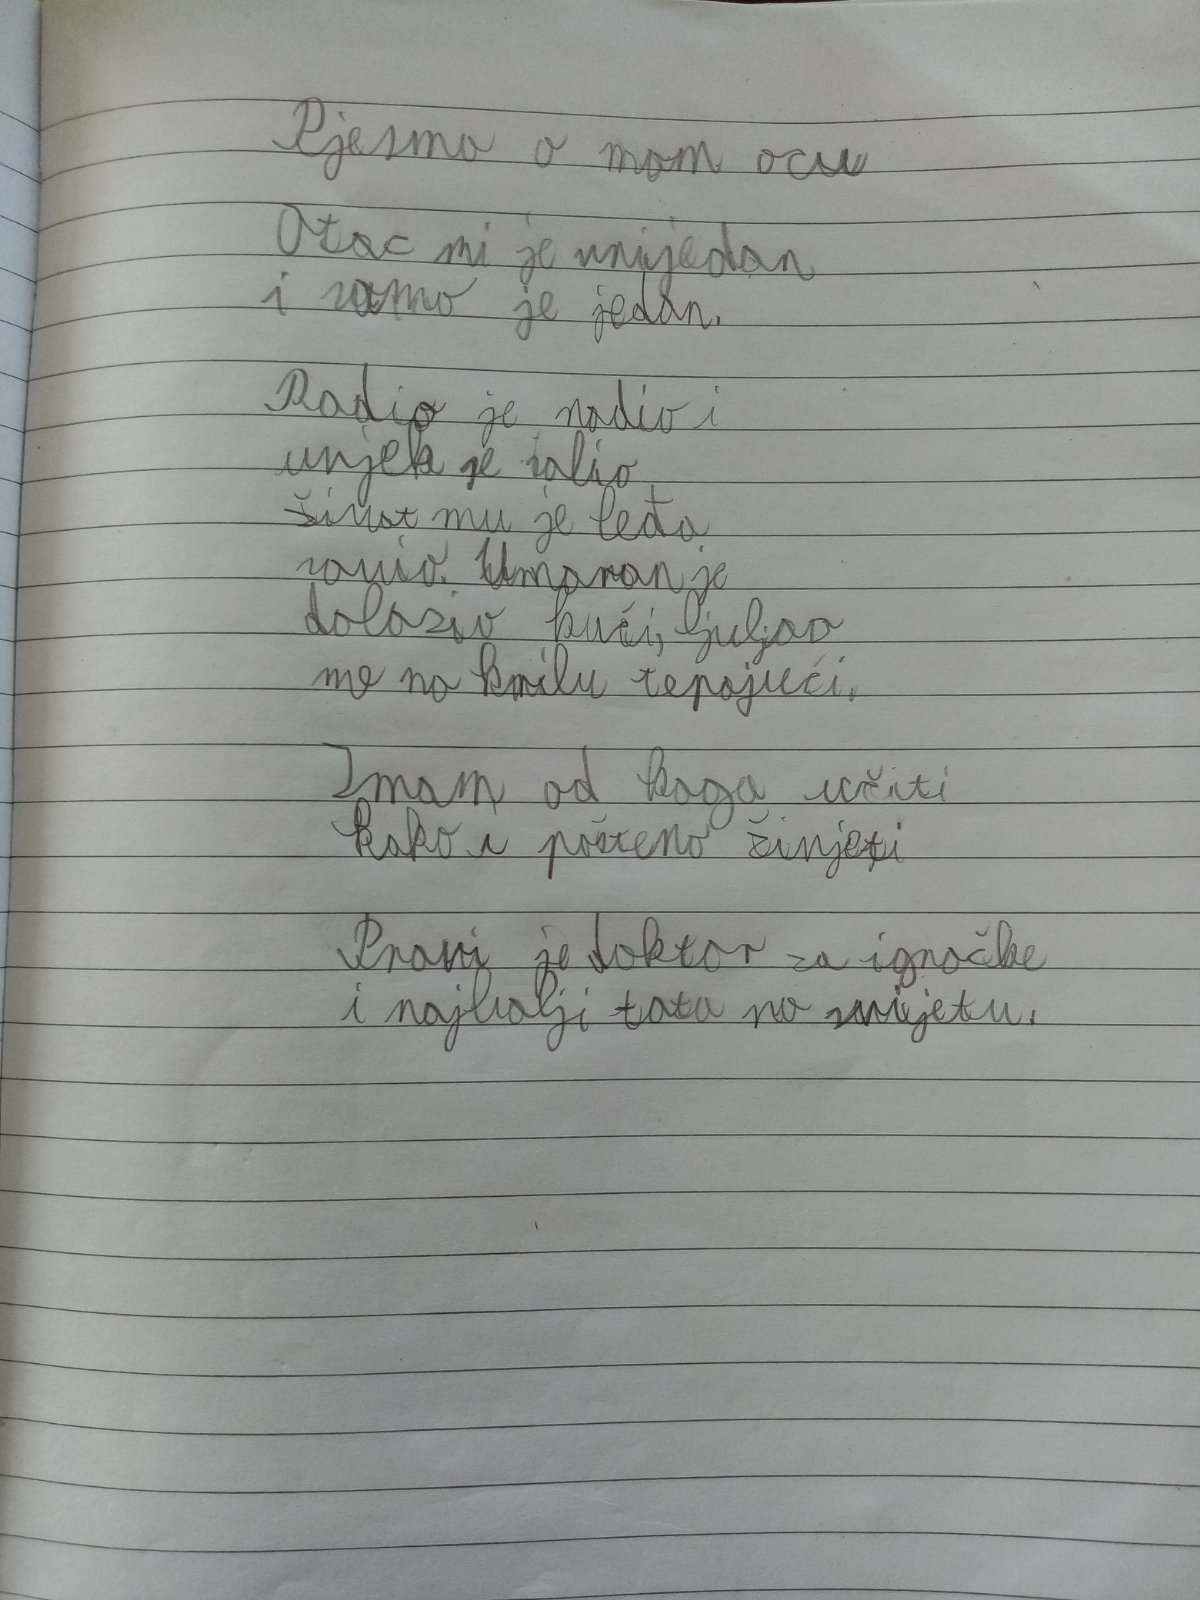 Pjesma o mom ocu
Otac mi je vrijedan
i samo je jedan.
Radio je radio i
uvijek je
život mu je leđa
savio. Umoran je
dolazio kući, ljuljao
me na krilu tepajući.
Imam od koga učiti
kako i pošteno živjeti
Pravi je doktor za igračke
i najbolji tata na svijetu.